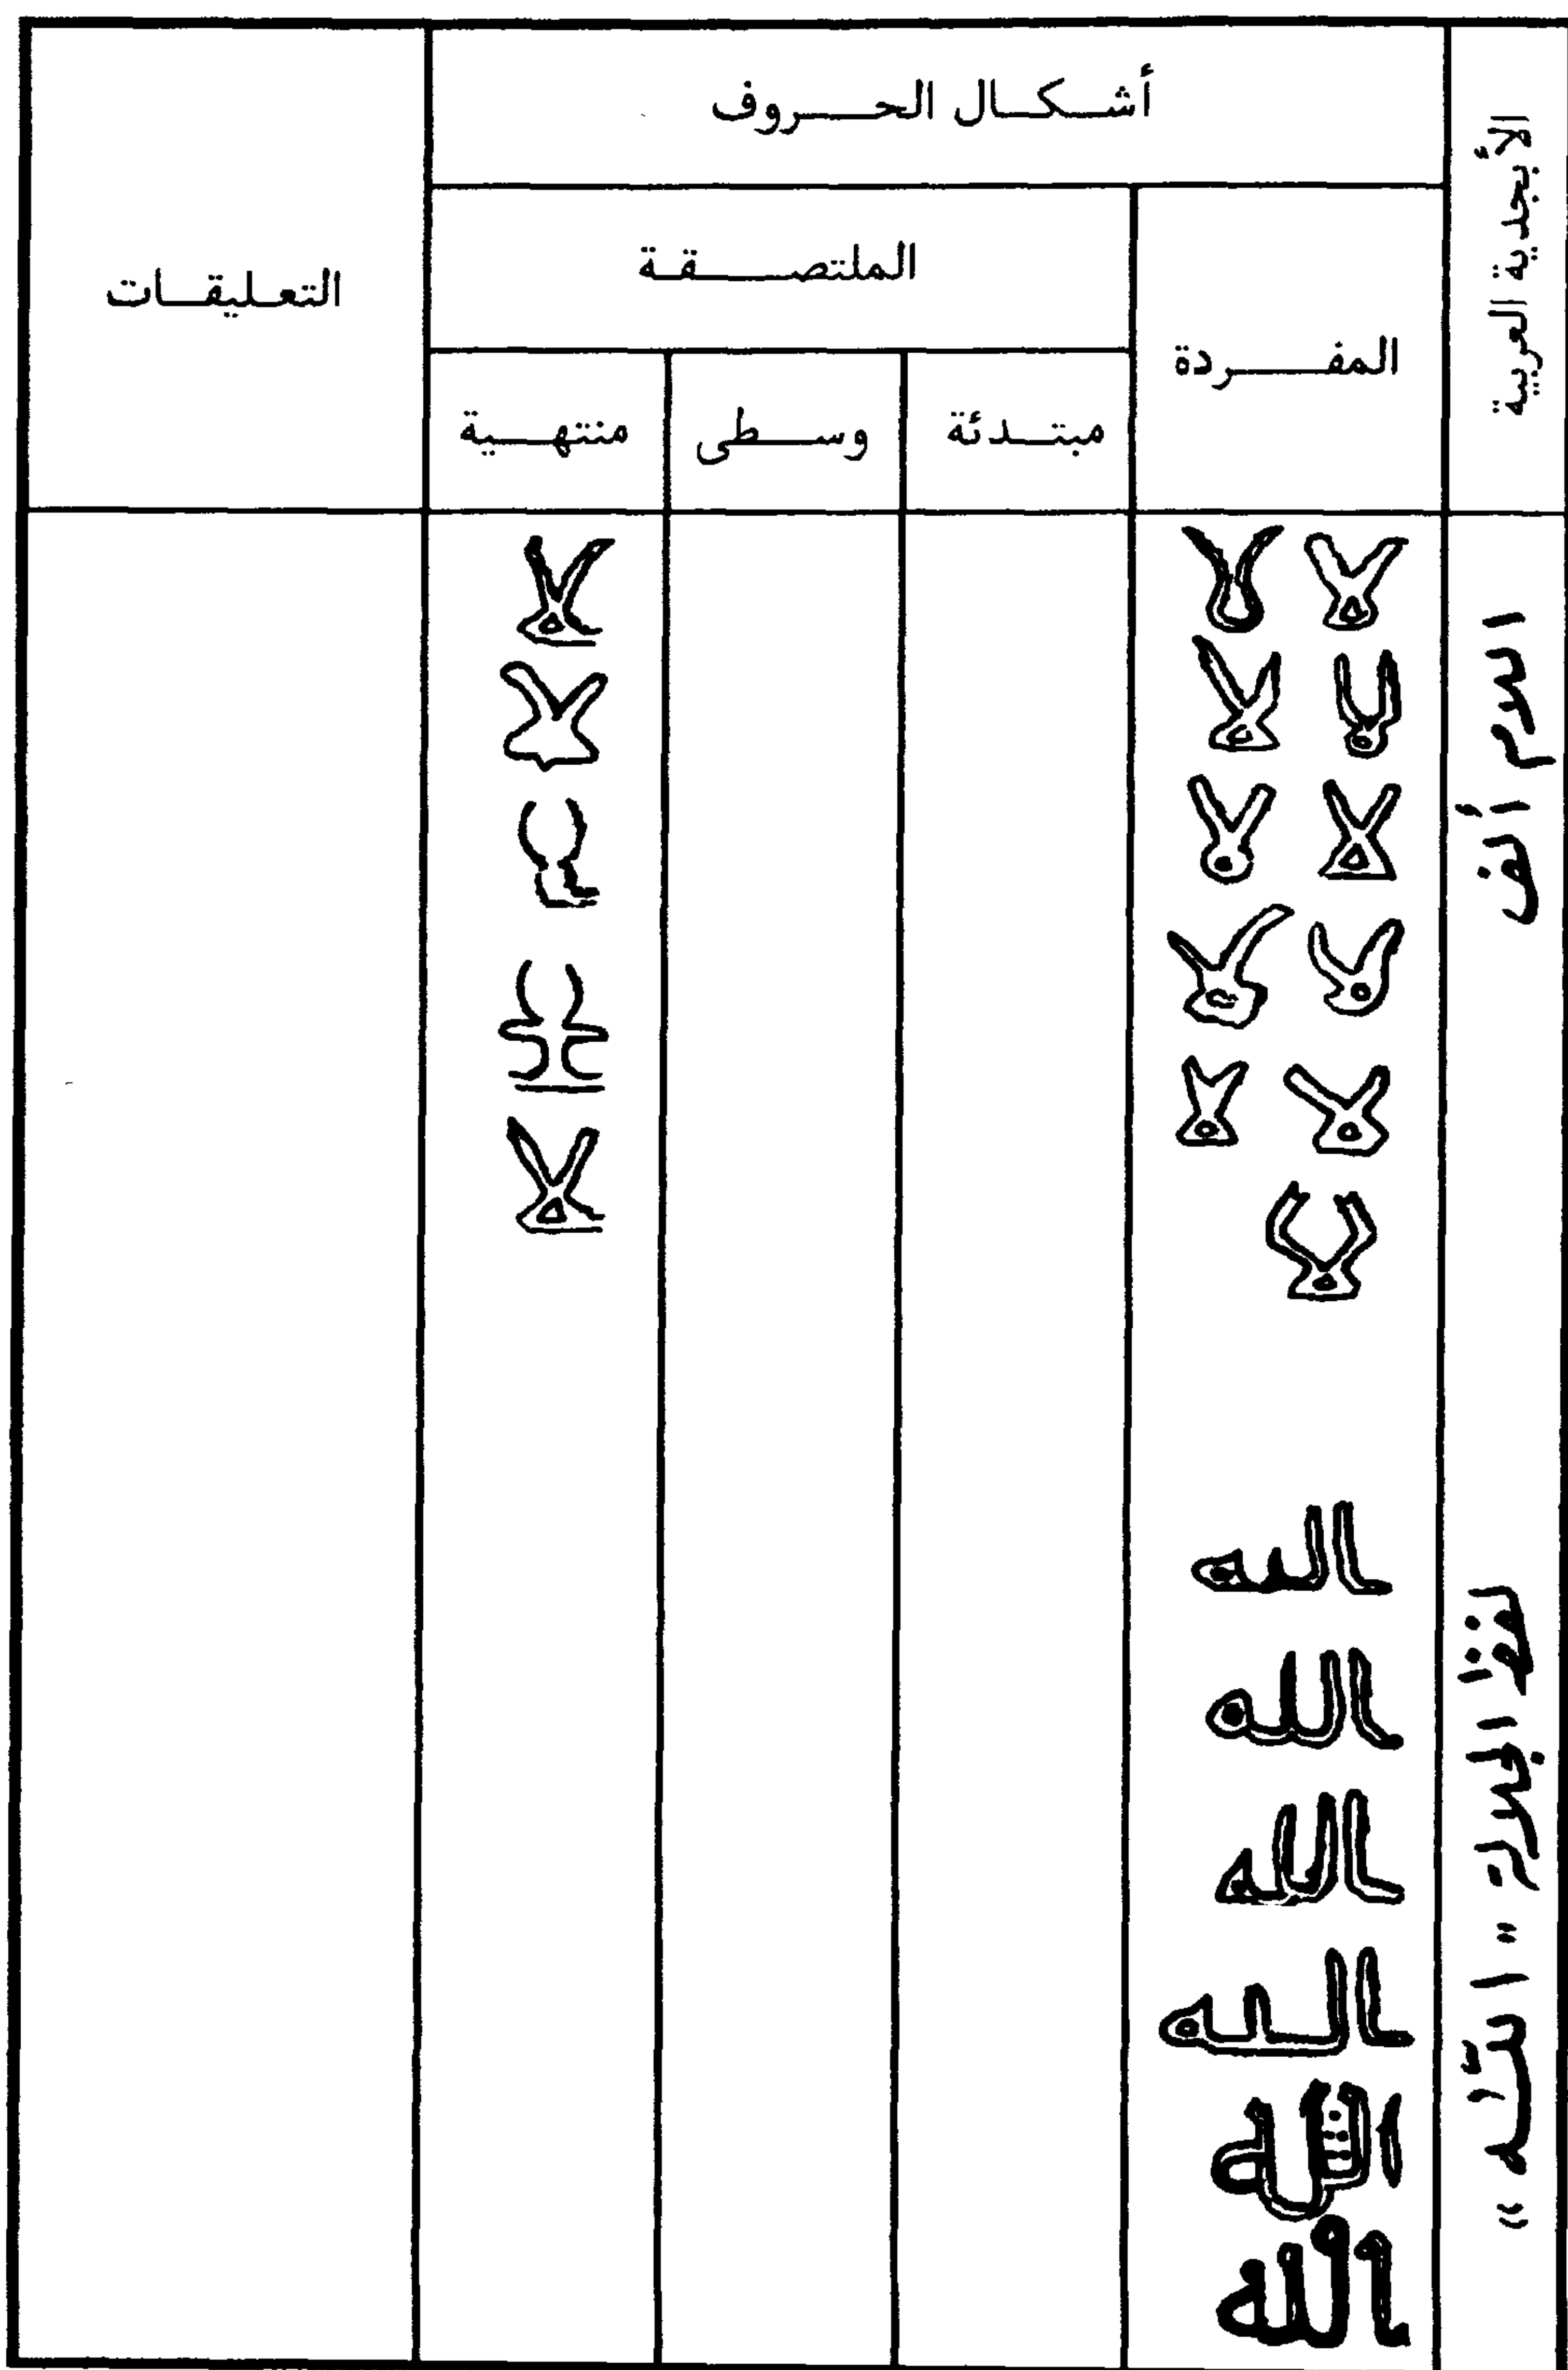 الأبجدية العربية
أشكال الحروف
التعليقات
الملتصقة
المفردة
مبتدئة
وسطى
منتهية
اللام ألف
لا لا
لا لا
لا لا
لا لا
لا لا
لا
لا
لا
لا
لا
لا
لفظ الجلالة "اللّٰه"
الله
الله
الله
الله
الله
الله